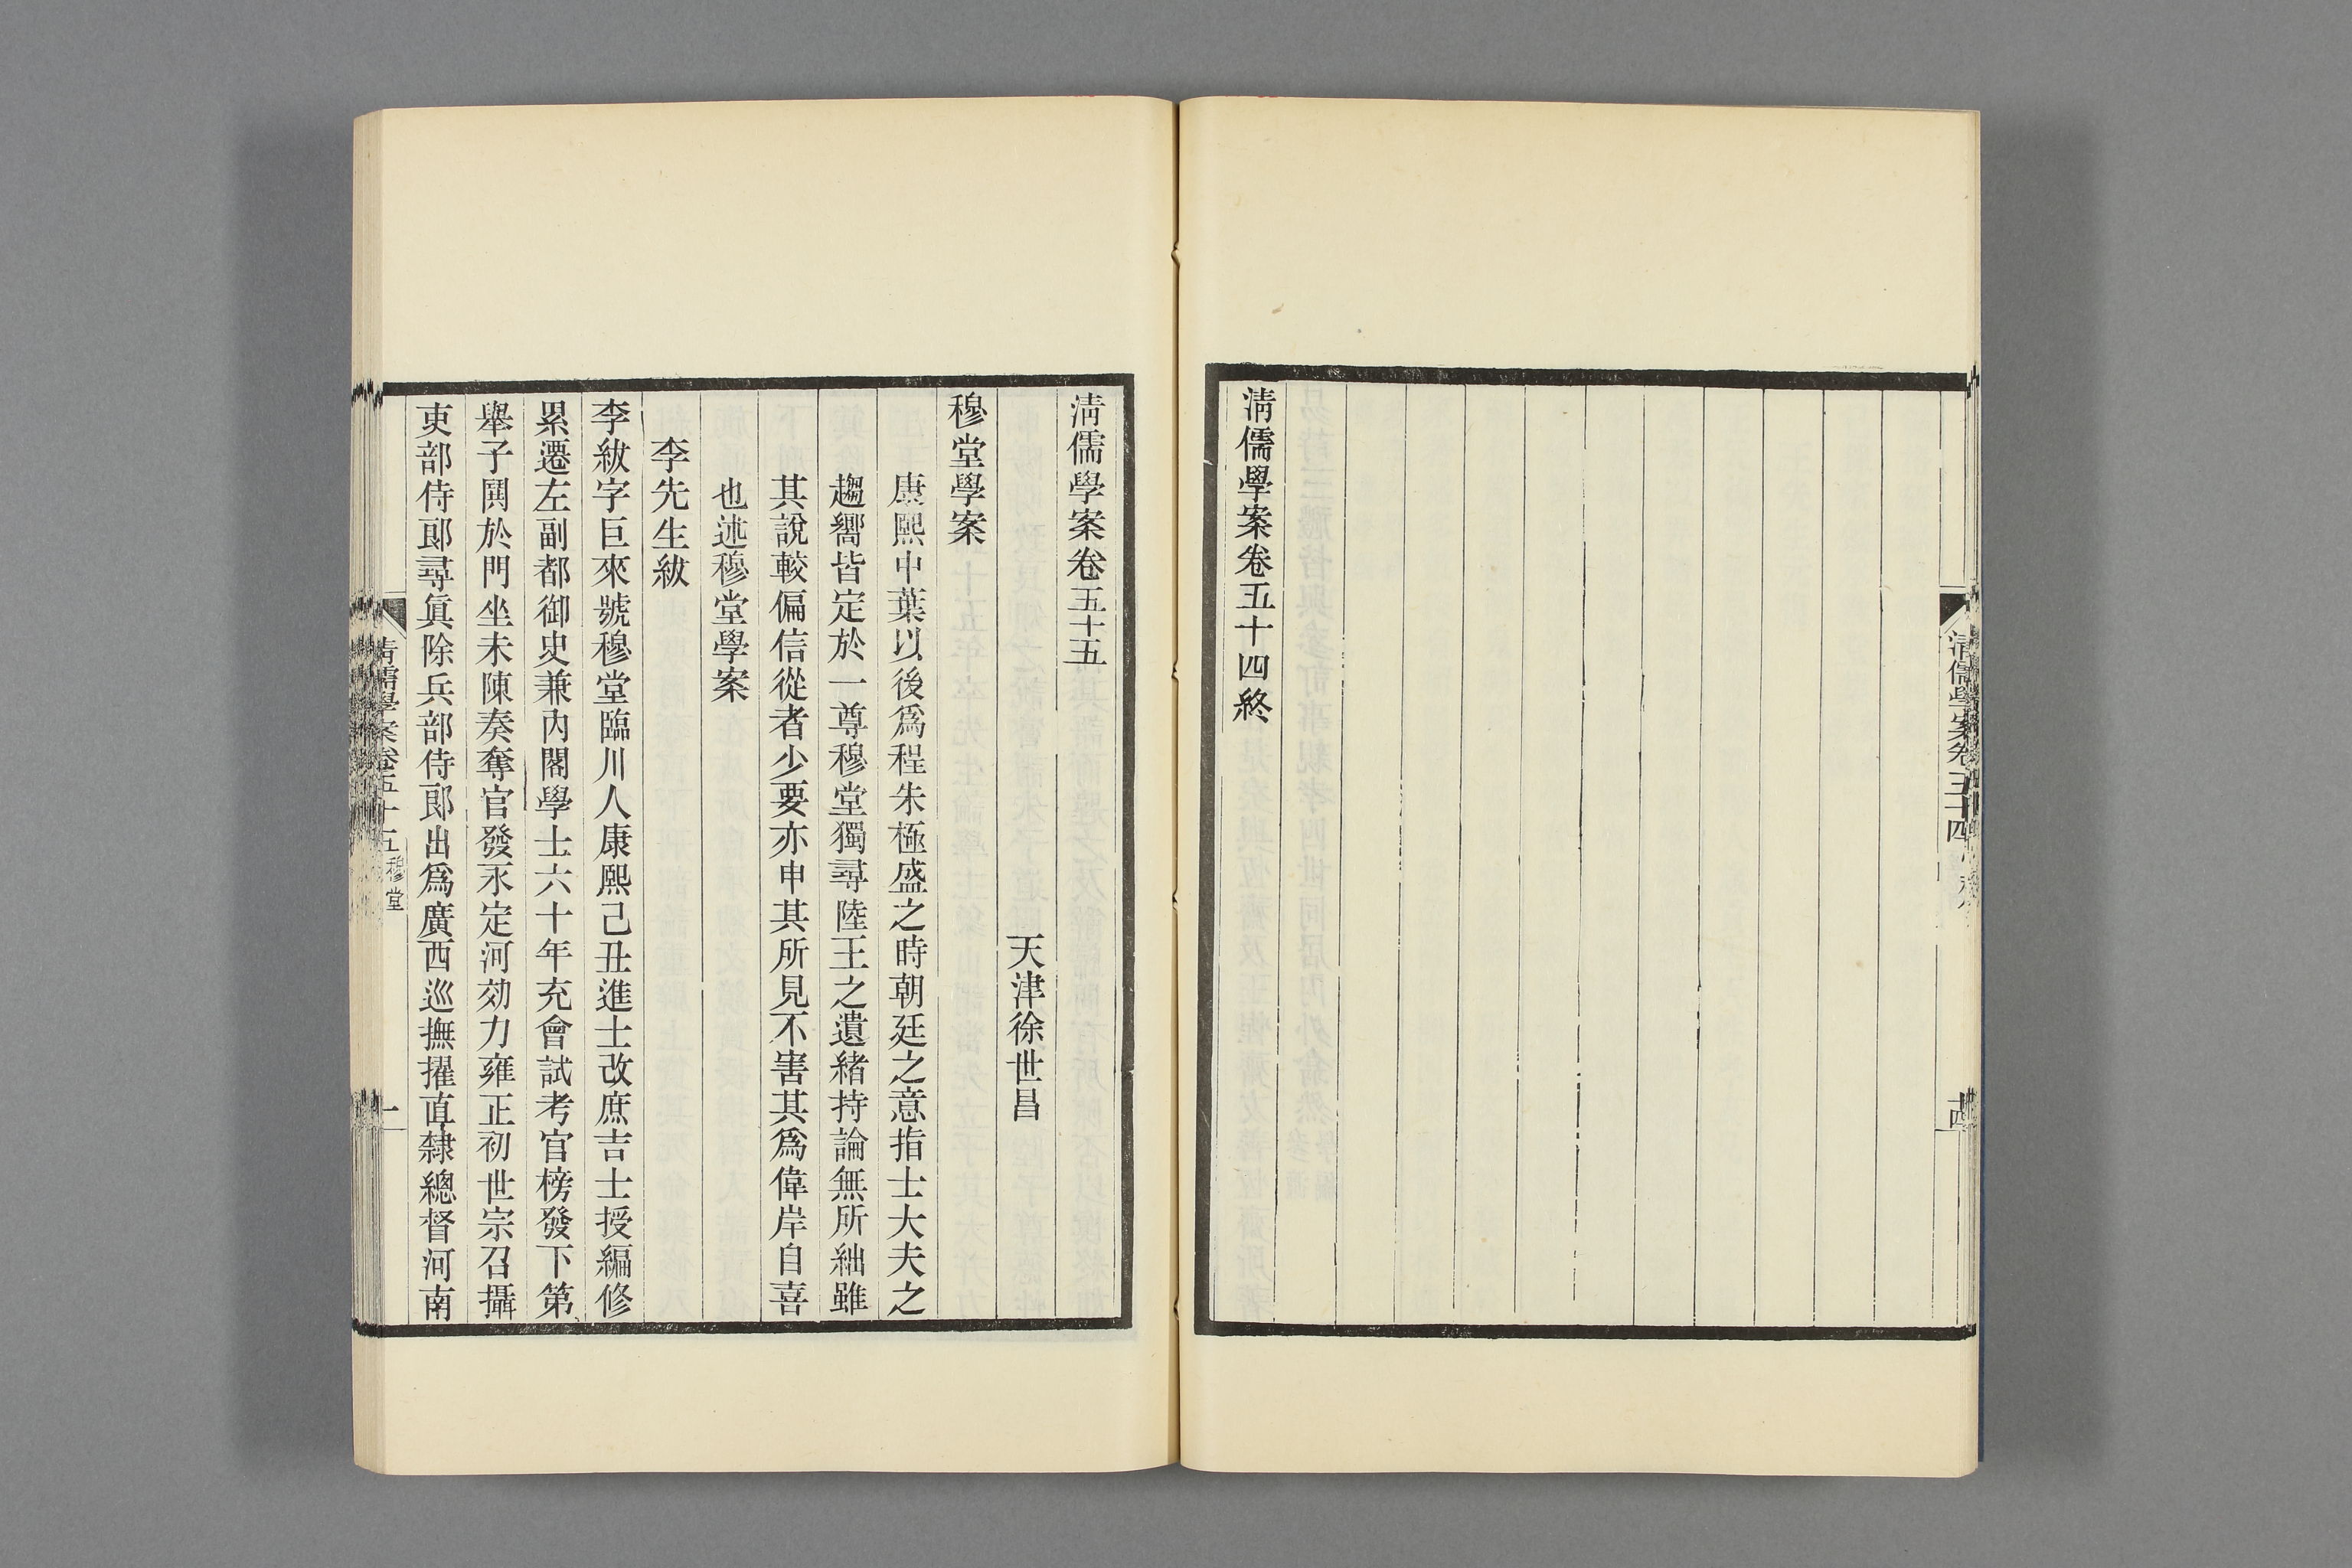 清儒學案卷五十四
十四
清儒學案卷五十四終
清儒學案卷五十五
天津徐世昌
穆堂學案
康熙中葉以後爲程朱極盛之時朝廷之意指士大夫之
趨嚮皆定於一尊穆堂獨尋陸王之遺緒持論無所絀雖
其說較偏信從者少要亦申其所見不害其爲偉岸自喜
也述穆堂學案
李先生紱
李紱字巨來號穆堂臨川人康熙己丑進士改庶吉士授編修
累遷左副都御史兼內閣學士六十年充會試考官榜發下第
舉子鬨於門坐未陳奏奪官發永定河効力雍正初世宗召攝
吏部侍郎尋眞除兵部侍郎出爲廣西巡撫擢直隸總督河南
清儒學案卷五十五 穆堂
一